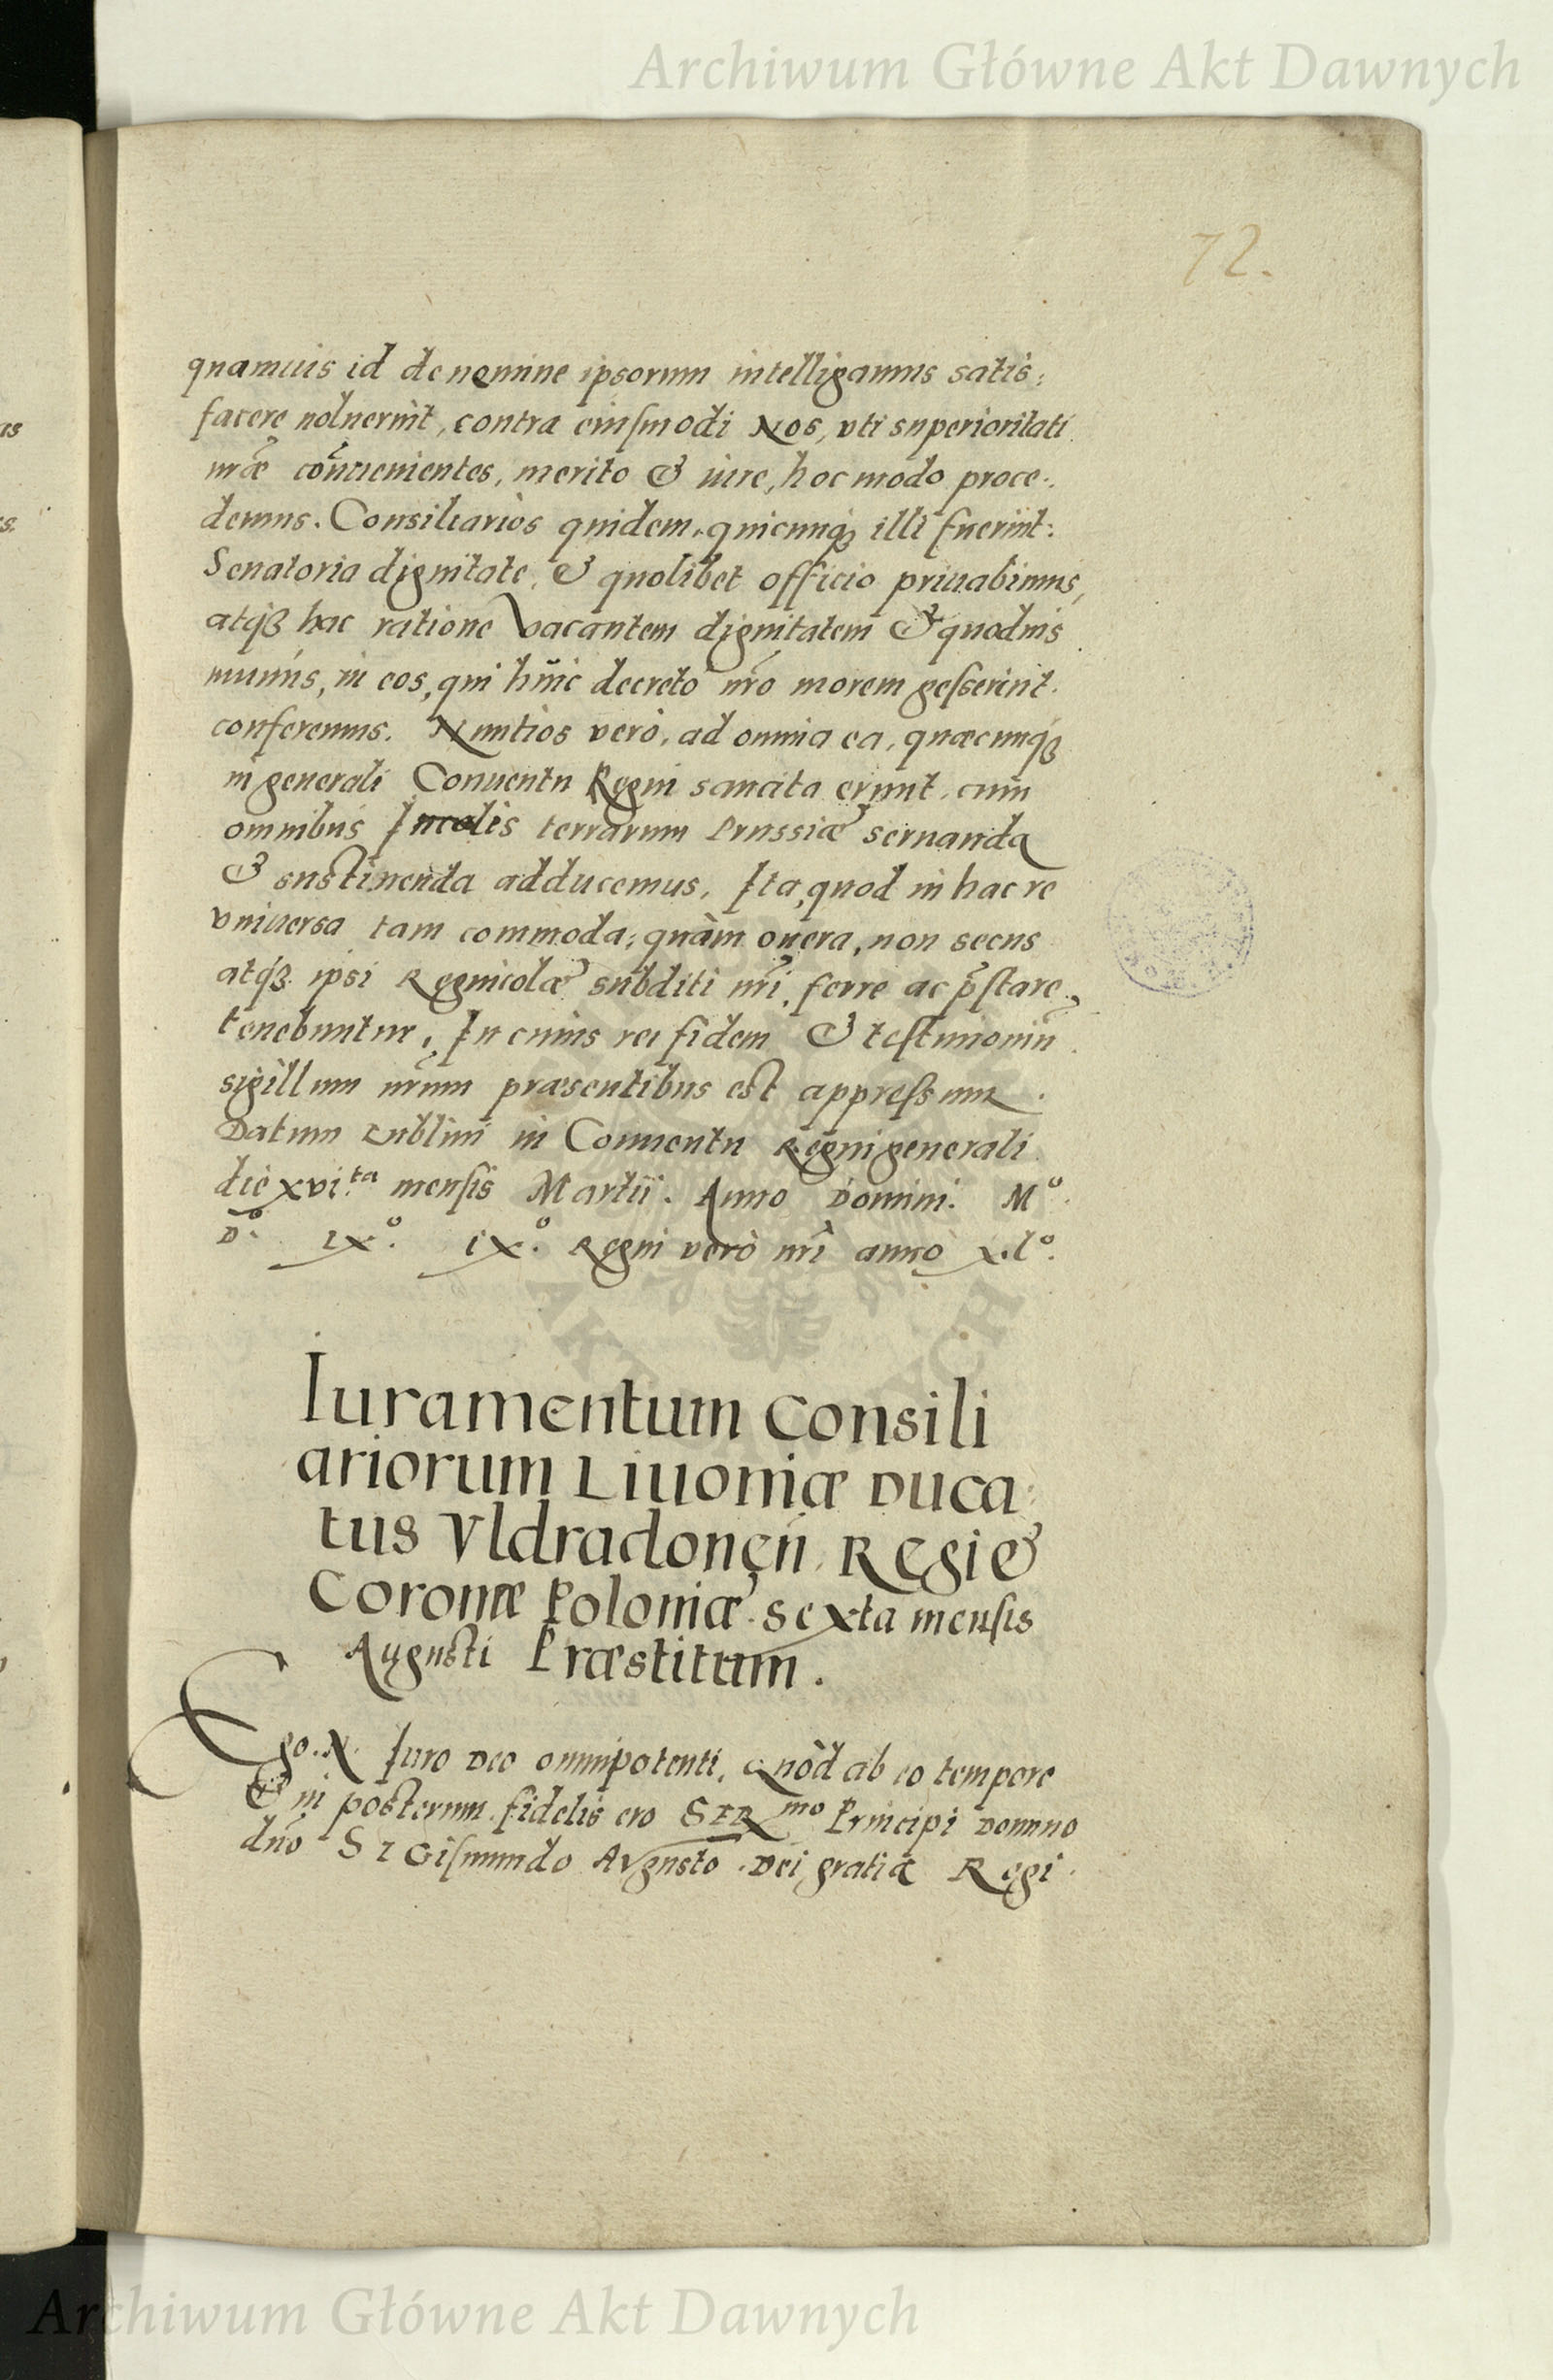 Archiwum Główne Akt Dawnych
72.
quamuis id de nemine ipsorum intelligamus satis:
facere noluerint, contra eiusmodi Nos, vti superioritati
nr̃æ conuenientes, merito & iure, hoc modo proce:
demus. Consiliarios quidem, quicunqꝫ illi fuerint:
Senatoria dignitate, & quolibet officio priuabimus,
atqꝫ hac ratione vacantem dignitatem & quoduis
munus, in eos, qui huic decreto nr̃o morem gesserint
conferemus. Nuntios verò, ad omnia ea, quæcunqꝫ
in generali Conuentu Regni sancita erunt, cum
omnibus Incolis terrarum Prussiæ seruanda
& sustinenda adducemus. Ita, quod in hac re
vniuersa tam commoda, quàm onera, non secus
atqꝫ ipsi Regnicolæ subditi nr̃i, ferre ac p̃stare
tenebuntur. In cuius rei fidem & testimoniũ
sigillum nr̃um præsentibus est appressum.
Datum Lublini in Conuentu Regni generali
die xvi.ta mensis Martii. Anno Domini. Mº.
Dº. LXº. IXº. Regni verò nr̃i anno xlº.
Iuramentum Consili
ariorum Liuoniæ Duca:
tus Vldradoneñ. Regiæ
Coronæ Poloniæ. sexta mensis
Augusti Præstitum.
Ego. N. Iuro Deo omnipotenti, Quòd ab eo tempore
& in posterum fidelis ero SERmo Principi Domino
dño Sigismundo Augusto Dei gratia Regi
Archiwum Główne Akt Dawnych